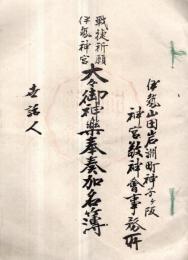 伊勢山田岩渕町神子ヶ阪
神宮敬神會事務所
戰捷祈願
伊勢神宮
大々御神樂奉奏加名簿
世話人